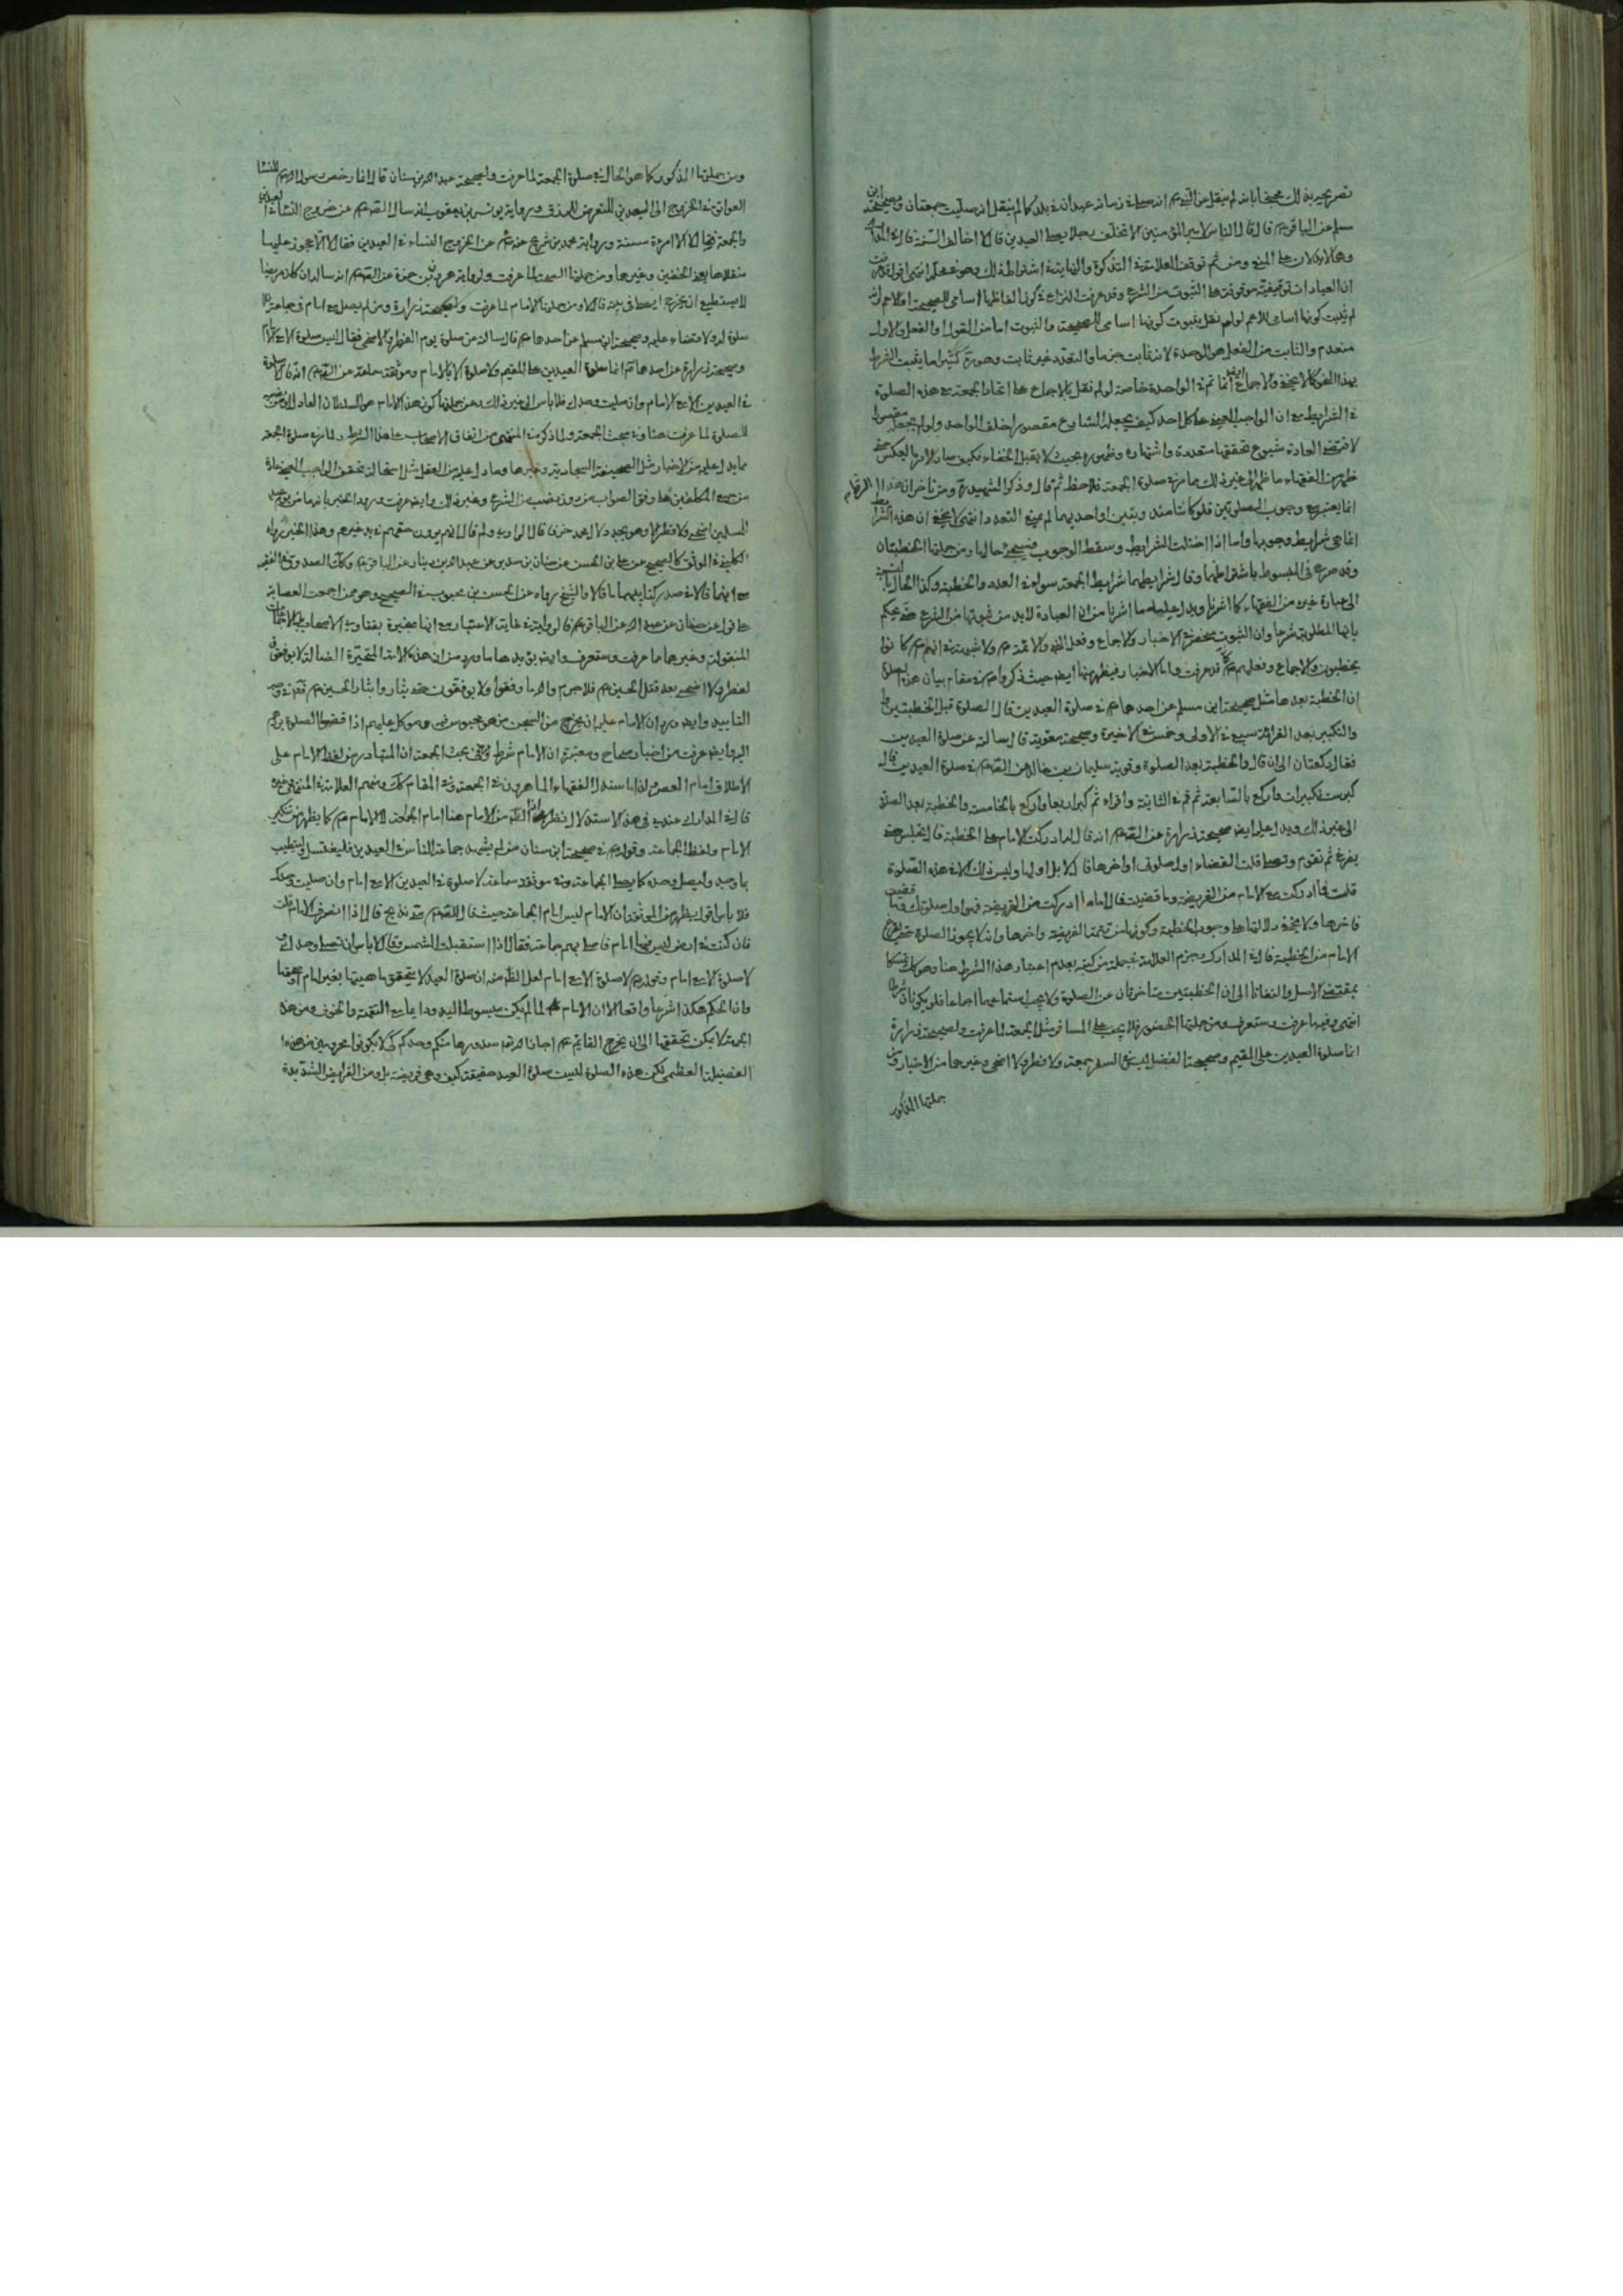 تصريحهم بذلك محتجا بانه لم ينقل عن النبي انه صلى في زمانه عيدان في بلد كما لم ينقل انه صليت جمعتان وصحيحة ابن
مسلم عن الباقر قال قال الناس لامير المؤمنين الا تخلف رجلا يصلي العيدين قال لا اخالف السنة قال في المدارك
وهما لا يدلان على المنع ومن ثم توقف العلامة في التذكرة والنهاية في اشتراط ذلك وهو في محله انتهى اقول قد عرفت
ان العبادات توقيفية موقوفة على الثبوت من الشرع وقد عرفت النزاع في كون الفاظها اسامي للصحيحة او للاعم وانه
لم يثبت كونها اسامي للاعم لو لم نقل بثبوت كونها اسامي للصحيحة والثبوت اما من القول او الفعل والاول
منعدم والثابت من الفعل هو الوحدة لانه ثابت جزما والتعدد غير ثابت وهو ره كثيرا ما يثبت الشرط
بهذا النحو كما لا يخفى والاجماع ايضا انما تم في الواحدة خاصة لو لم نقل بالاجماع على اتحاد الجمعة مع هذه الصلوة
في الشرايط مع ان الواجب العيني على كل احد كيف يجعله الشارع مقصورا خلف الواحد ولو لم يجعله مقصورا
لاقتضى العادة شيوع تحققها متعددة واشتهاره وظهوره بحيث لا يقبل الخفاء فكيف صار الامر بالعكس حتى
ظهر من الفقهاء ما ظهر الى غير ذلك مما مر في صلوة الجمعة فلاحظ ثم قال وذكر الشهيد ره ومن تاخر ان هذا الشرط
انما يعتبر مع وجوب الصلوتين فلو كانتا مندوبتين او احديهما لم يمنع التعدد انتهى لا يخفى ان هذه الشرائط
انما هي شرايط وجوبها واما اذا اختلت الشرايط وسقط الوجوب فسيجئ حالها ومن جملتها الخطبتان
وقد صرح في المبسوط باشتراطهما وقال شرايطهما شرايط الجمعة سواء في العدد والخطبة وكذا الحال بالنسبة
الى عبارة غيره من الفقهاء كما اشرنا ويدل عليه ما اشرنا من ان العبادة لا بد من ثبوتها من الشرع حتى يحكم
بانها المطلوبة شرعا وان الثبوت منحصر في الاخبار والاجماع وفعل النبي والائمة ولا شبهة في انهم كانوا
يخطبون والاجماع وفعلهم قد عرفت واما الاخبار فيظهر منها ايضا حيث ذكروا في مقام بيان هذه الصلوة
ان الخطبة بعدها مثل صحيحة ابن مسلم عن احدهما في صلوة العيدين قال الصلوة قبل الخطبتين
والتكبير بعد القراءة سبع في الاولى وخمس في الاخيرة وصحيحة معوية قال سالته عن صلوة العيدين
فقال ركعتان الى ان قال والخطبة بعد الصلوة وقوية سليمان بن خالد عن الصادق في صلوة العيدين قال
كبر ست تكبيرات واركع بالسابعة ثم قم في الثانية واقراء ثم كبر اربعا واركع بالخامسة والخطبة بعد الصلوة
الى غير ذلك ويدل عليه ايضا صحيحة زرارة عن الصادق انه قال اذا ادركت الامام على الخطبة قال تجلس حتى
يفرغ ثم تقوم وتصلي قلت القضاء اول صلوتي او اخرها قال لا بل اولها وليس ذلك الا في هذه الصلوة
قلت فما ادركت مع الامام من الفريضة وما قضيت قال اما ما ادركت من الفريضة فهو اول صلوتك وما قضيت
فاخرها ولا يخفى دلالتها على وجوب الخطبة وكونها من تتمة الفريضة واخرها وانه لا يجوز الصلوة حتى يفرغ
الامام من الخطبة قال في المدارك وجزم العلامة في جملة من كتبه بعدم اعتبار هذا الشرط هنا وهو كذلك تمسكا
بمقتضى الاصل والتفاتا الى ان الخطبتين متاخرتان عن الصلوة ولا يجب استماعهما اجماعا فلو يكونان شرطا
انتهى وفيه ما عرفت وستعرف ومن جملتها الحضور فلا يجب على المسافر مثل الجمعة لما عرفت ولصحيحة زرارة
انما صلوة العيدين على المقيم وصحيحة الفضيل ليس في السفر جمعة ولا فطر ولا اضحى وغيرهما من الاخبار ومن
جملتها الذكور
ومن جملتها الذكورة كما هو الحال في صلوة الجمعة لما عرفت ولصحيحة عبد الله بن سنان قال انما رخص رسول الله للنساء
العواتق في الخروج الى العيدين للتعرض للرزق ورواية يونس بن يعقوب انه سال الصادق عن خروج النساء في العيدين
والجمعة فقال لا الا امرءة مسنة ورواية محمد بن شريح عنه عن الخروج النساء في العيدين فقال لا الا عجوز عليها
منقلاها يعني الخفين وغيرها ومن جملتها الصحة لما عرفت ولرواية هرون بن حمزة عن الصادق انه ساله ان كان مريضا
لا يستطيع ان يخرج ايصلي في بيته قال لا ومن جملتها الامام لما عرفت ولصحيحة زرارة ومن لم يصل مع امام في جماعة فلا
صلوة له ولا قضاء عليه وصحيحة ابن مسلم عن احدهما قال سالته عن صلوة يوم الفطر والاضحى فقال ليس صلوة الا مع امام
وصحيحة زرارة عن احدهما انما صلوة العيدين على المقيم ولا صلوة الا بالامام وموثقة سماعة عن الصادق انه قال لا صلوة
في العيدين الا مع الامام وان صليت وحدك فلا باس الى غير ذلك ومن جملتها كون هذا الامام هو السلطان العادل او من نصبه
للصلوة لما عرفت هنا وفي مبحث الجمعة ولما ذكره في المنتهى من اتفاق الاصحاب على هذا الشرط ولما مر في صلوة الجمعة
مما يدل عليه من الاخبار مثل الصحيفة السجادية وغيرها وما دل عليه من العقل مثل استحالة تحقق الواجب العيني عادة
من جميع المكلفين على وفق الصواب من دون نصب من الشرع وغير ذلك وايضا عرفت ورود الخبر بانه ما من يوم عيد
للمسلمين اضحى ولا فطر الا وهو يجدد لال محمد حزنا قال الراوي ولم قال انهم يرون حقهم في يد غيرهم وهذا الخبر رواه
الكليني في الموثق كالصحيح عن علي بن الحسن عن حنان بن سدير عن عبد الله بن دينار عن الباقر وكذلك الصدوق في الفقيه
مع انهما قالا في صدر كتابيهما ما قالا والشيخ رواه عن الحسن بن محبوب في الصحيح وهو ممن اجمعت العصابة
على قوله عن حنان عن عبد الله عن الباقر فالرواية في غاية الاعتبار مع انها منجبرة بفتاوى الاصحاب بل الاجماعات
المنقولة وغيرهما مما عرفت وستعرف وايضا يؤيدها ما ورد من ان هذه الامة المتحيرة الضالة لا يوفقون
لفطر ولا اضحى بعد قتل الحسين فلا جرم والله ما وفقوا ولا يوفقون حتى يثار وا بثار الحسين فتم وجه
التاييد وايضا ورد ان الامام عليه ان يخرج من السجن من هو محبوس في دين وموكل عليهم اذا قضوا الصلوة ردهم
اليه وايضا عرفت من اخبار صحاح ومعتبرة ان الامام شرط وفي بحث الجمعة ان المتبادر من لفظ الامام على
الاطلاق امام العصر ولذا ما استدل الفقهاء الماهرون في الجمعة وفي المقام كذلك ومنهم العلامة في المنتهى وغيره
قال في المدارك عندي في هذا الاستدلال نظر اذ الظاهر من الامام هنا امام الجماعة لا الامام كما يظهر من تنكير
الامام ولفظ الجماعة وقوله في صحيحة ابن سنان من لم يشهد جماعة الناس في العيدين فليغتسل وليتطيب
بما وجد وليصل وحده كما يصلي الجماعة وفي موثقة سماعة لا صلوة في العيدين الا مع امام وان صليت وحدك
فلا باس اقول يظهر من الموثق ان الامام ليس امام الجماعة حيث قال للصادق متى نذبح قال اذا انصرف الامام قلت
فان كنت في ارض ليس فيها امام فاصلي بهم جماعة فقال اذا استقبلت الشمس وقال لا باس ان تصلي وحدك
لا صلوة الا مع امام وقوله لا صلوة الا مع امام لعل الظاهر منه ان صلوة العيد لا يتحقق ماهيتها بغير امام
وان الحكم هكذا شرعا واقعا الا ان الامام لما لم يكن مبسوط اليد ودائما مع التقية والخوف ومن هذه
الجهة لا يمكن تحققها الى ان يخرج القائم اجازنا الائمة صدورها منكم وحدكم كي لا يكونوا محرومين من هذه
الفضيلة العظمى لكن هذه الصلوة ليست صلوة العيد حقيقة كيف وهي فريضة بل ومن الفرايض الشديدة